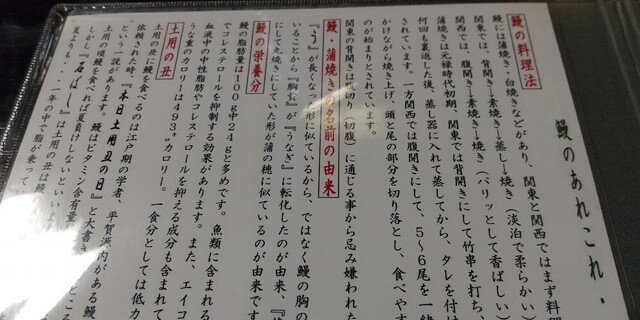 鰻のあれこれ・
鰻の料理法
鰻には蒲焼き・白焼きなどがあり、関東と関西ではまず料理
関東では、背開き→素焼き→蒸し→焼き(淡泊で柔らかい)
関西では、腹開き→素焼き→焼き(パリッとして香ばしい)
蒲焼きは元禄時代初期、関東では背開きにして竹串を打ち、
何回も裏返した後、蒸し器に入れて蒸してから、タレを付け
されています。一方関西では腹開きにして、5～6尾を一緒
かけながらと焼き上げ、頭と尾の部分を切り落とし、食べやす
のが始まりとされています。
関東の背開きは腹切り(切腹)に通じる事から忌み嫌われた
鰻・蒲焼きの名前の由来
『う』が長くなった形に似ているから、ではなく鰻の胸の
いることから『胸黄』が『うなぎ』に転化したのが由来、『
にして丸焼きにしていた形が蒲の穂に似ているのが由来です
鰻の栄養分
鰻の脂肪量は100g中24gと多めです。魚類に含まれる
でコレステロールを抑制する効果があります。また、エイコ
血液中の中性脂肪やコレステロールを抑える成分も含まれて
うな重のカロリーは493㌔カロリー。一食分としては低カ
土用の丑
土用の丑に鰻を食べるのは江戸期の学者、平賀源内がある鰻
依頼された時、『本日土用丑の日』と大書き
という一説があります。鰻はビタミン含有量
土用の頃鰻を食べれば夏負けしないとい
しかし『石ばし』は土用の丑は鰻
夏よりも・・二年の中で脂が乗って